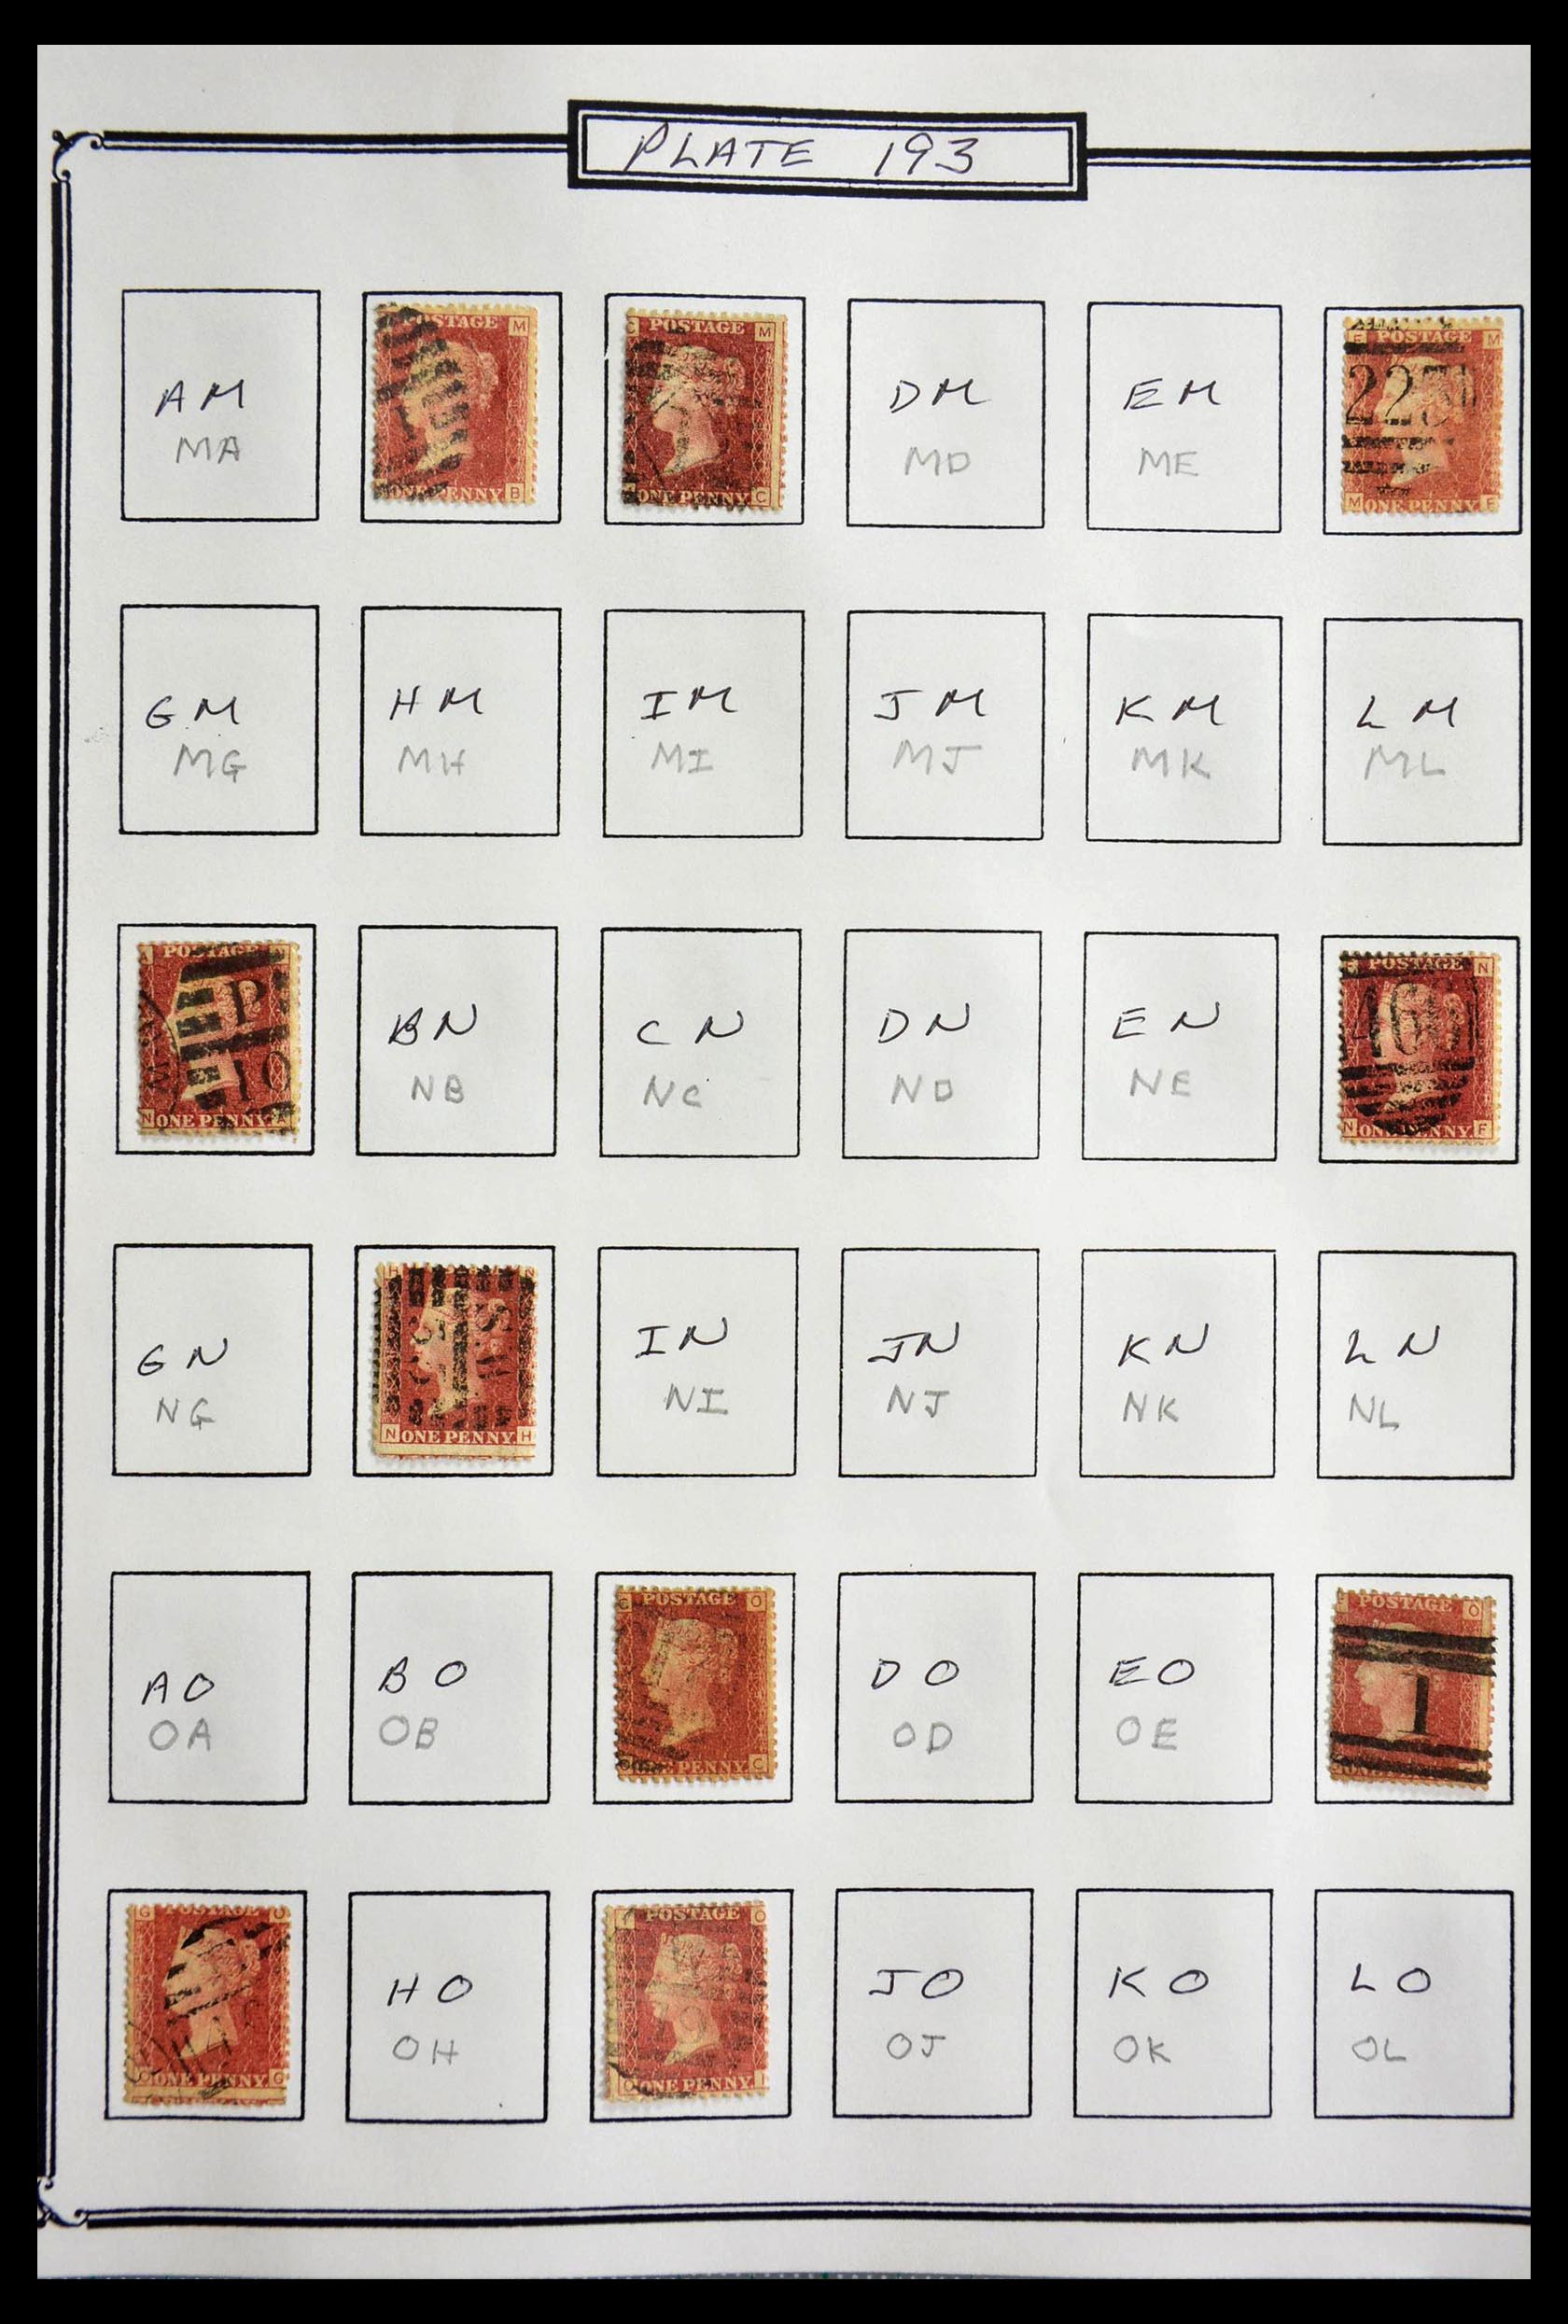 PLATE 193
AM
MA
POSTAGE M
ONE PENNY B
C POSTAGE M
ONE PENNY C
DM
MD
EM
ME
F POSTAGE M
M ONE PENNY F
GM
MG
HM
MH
IM
MI
JM
MJ
KM
MK
LM
ML
A POSTAGE N
P
10
N ONE PENNY A
BN
NB
CN
NC
DN
ND
EN
NE
F POSTAGE N
466
N ONE PENNY F
GN
NG
H N
N ONE PENNY H
IN
NI
JN
NJ
KN
NK
LN
NL
AO
OA
BO
OB
C POSTAGE O
ONE PENNY C
DO
OD
EO
OE
POSTAGE O
1
G POSTAGE O
O ONE PENNY G
HO
OH
I POSTAGE O
O ONE PENNY I
JO
OJ
KO
OK
LO
OL